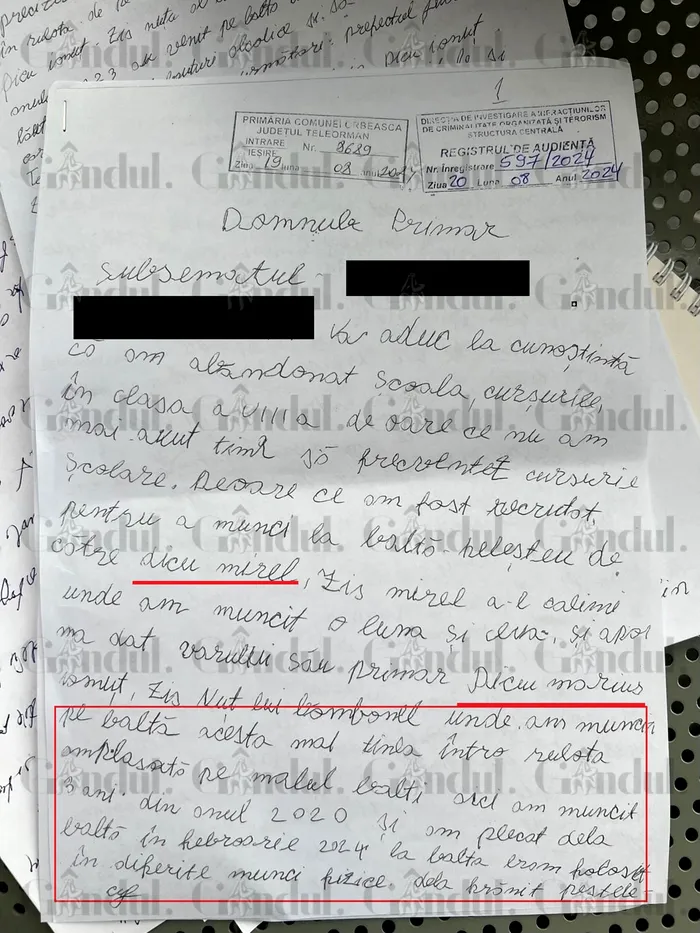 în rulota de
Dicu Ionut. Zis nuța al
2023 au venit pe balta
băuturi alcolice și să
următori: prefectul
Dicu Ionut
1
PRIMĂRIA COMUNEI ORBEASCA
JUDEȚUL TELEORMAN
INTRARE
IEȘIRE Nr. 8689
Ziua 19 luna 08 anul 2024
DIRECȚIA DE INVESTIGARE A INFRACȚIUNILOR
DE CRIMINALITATE ORGANIZATĂ ȘI TERORISM
STRUCTURA CENTRALĂ
REGISTRUL DE AUDIENȚĂ
Nr. înregistrare 597/2024
Ziua 20 Luna 08 Anul 2024
Domnule Primar
Subsematul -
Va aduc la cunoștintă
că am abandonat Școala, cursurile,
în clasa a VIII a de oare ce nu am
mai avut timp să frecventez cursurie
școlare. Deoare ce am fost recrutat
pentru a munci la baltă-heleșteu de
către dicu mirel, Zis mirel a-l calimi
unde am muncit o luna și ceva, și apoi
ma dat varului său primar Dicu marius
ionuț, Zis Nuț lui bombonel unde am muncit
pe baltă acesta mai tinea într-o rulota
amplasată pe malul balți aici am muncit
3 ani din anul 2020 și am plecat dela
baltă în febroarie 2024 la balta eram folosit
în diferite munci fizice dela hrănit pestele-
Gândul.